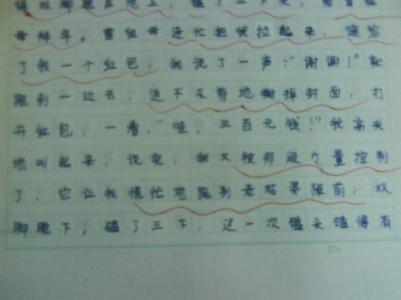 双脚跪在地上，磕了三下头，
母拜年。曾祖母连忙把我拉起来，还给
了我一个红包，我说了一声："谢谢！"就
跑到一边去，迫不及待地撕掉封面，打
开红包，一看，"哇，三百元钱！"我高兴
地叫起来，说完，我又被那股力量控制
了，它让我慌忙地跑到老祖婆跟前，双
脚跪下，磕了三下，这一次磕头磕得有